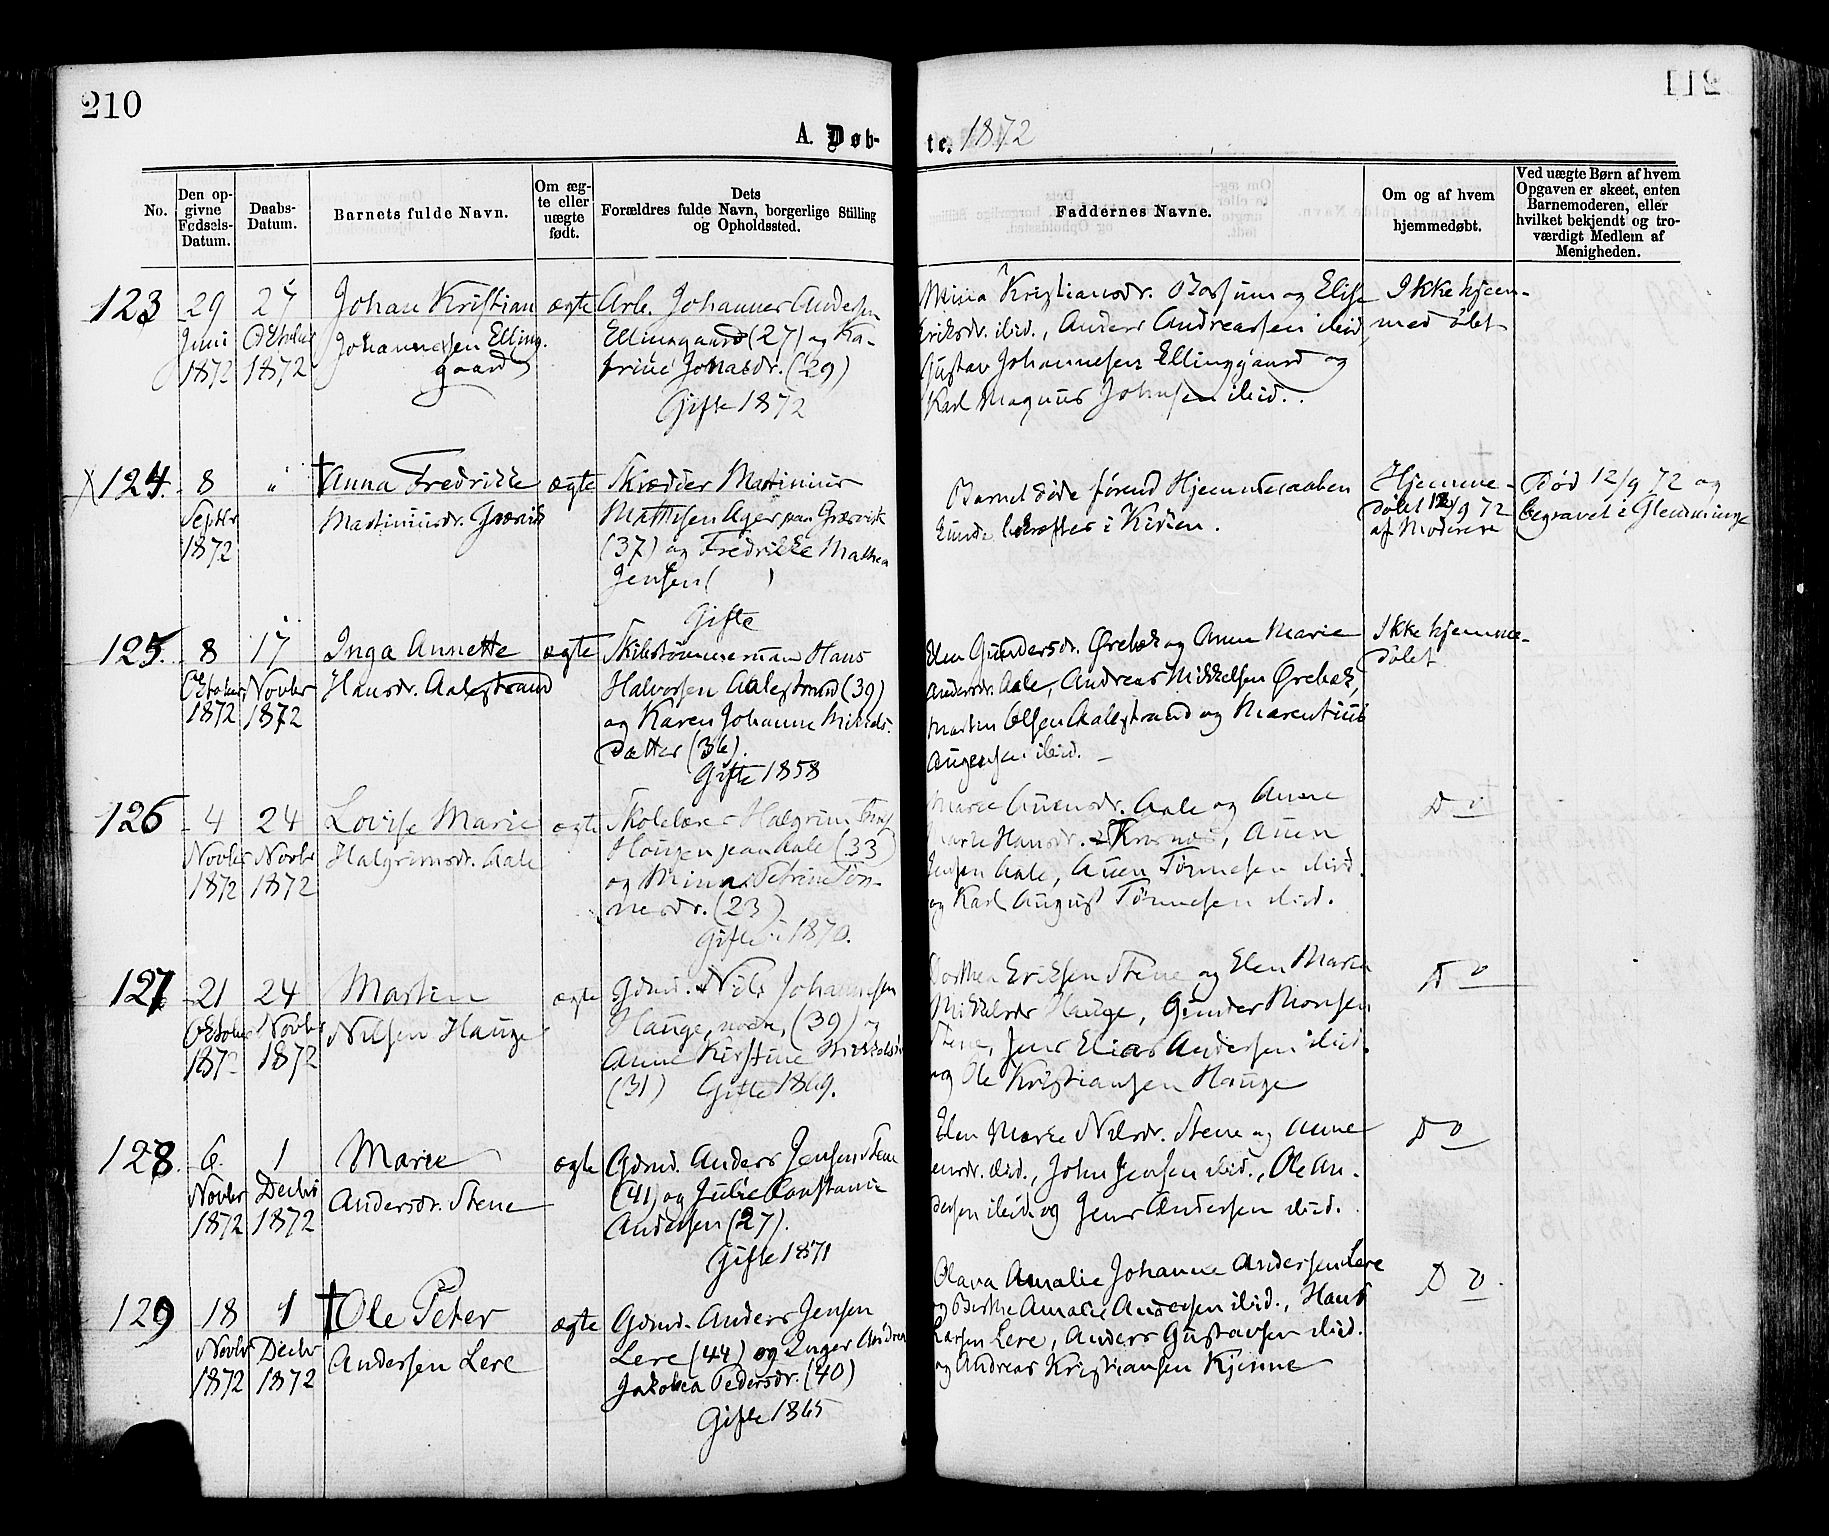 210
A. Døb-
te. 1872
No.
Den op-
givne
Fødsels-
Datum.
Daabs-
Datum.
Barnets fulde Navn.
Om æg-
te eller
uægte
født.
Dets
Forældres fulde Navn, borgerlige Stilling
og Opholdssted.
Faddernes Navne.
Om og af hvem
hjemmedøbt.
Ved uægte Børn af hvem
Opgaven er skeet, enten
Barnemoderen, eller
hvilket bekjendt og tro-
værdigt Medlem af
Menigheden.
123
29
Juni
1872
27
Oktober
1872
Johan Kristian
Johannesen Elling-
gaard
ægte
Arb. Johannes Andersen
Ellinggaard (27) og Ka-
trine Jonasdr. (29)
Gifte 1872
Mina Kristiansdr. og Elise
Eriksdr. ibid., Anders Andreassen ibid,
Gustav Johannesen Ellinggaard og
Karl Magnus Johnsen ibid.
Ikke hjem-
med øbt
124.
8
Septbr
1872
"
† Anna Fredrikke
Martiniusdr. Græsvik
ægte
Skræder Martinius
Mathisen Ager paa Græsvik
(37) og Fredrikke Mathea
Jensen ( )
Gifte
Barnet døde førend Hjemmedaaben
kunde bekræftes i Kirken.
Hjemme-
døbt 12/9 72
af Moderen
Død 12/9 72 og
begravet i Glemminge
125.
8
Oktober
1872
17
Novbr
1872
Inga Annette
Hansdr. Aalestrand
ægte
Skibstømmermand Hans
Halvorsen Aalestrand (39)
og Karen Johanne Mikkels-
datter (36).
Gifte 1858
Elen Gundersdr. Ørebæk og Anne Marie
Andersdr. Aale, Andreas Mikkelsen Ørebæk,
Martin Olsen Aalestrand og Marentius
ibid.
Ikke hjemme-
døbt
126
4
Novbr
1872
24
Novbr
1872
Lovise Marie
Halgrimsdr. Aale
ægte
Skolelærer Halgrim
Haugen paa Aale (33)
og Mina Petrine Tøn-
nesdr. (23)
Gifte i 1870.
Marie Auensdr. Aale og Anne
Marie Hansdr. Auen
Jensen Aale, Auen Tønnesen ibid.
og Karl August Tønnesen ibid.
Do
127
21
Oktober
1872
24
Novbr
1872
Martin
Nilsen Hauge
ægte
Gdmd. Nils Johannesen
Hauge, (39) og
Anne Kirstine Mikkelsdr
(31) Gifte 1869.
Dorthea Eriksen Stene og Elen Marie
Mikkelsdr Hauge, Gunder Monsen
Stene, Jens Elias Andersen ibid.
og Ole Kristiansen Hauge
Do
128.
6.
Novbr
1872
1
Decbr
1872
Marie
Andersdr. Stene
ægte
Gdmd. Anders Jensen Stene
(41) og Julie Konstance
Andersen (27).
Gifte 1871
Elen Marie Nilsdr. Stene og Anne
ibid., John Jensen ibid., Ole An-
dersen ibid. og Jens Andersen ibid.
Do
129
18
Novbr
1872
1
Decbr
1872
† Ole Peter
Andersen Lere
ægte
Gdmd. Anders Jensen
Lere (44) og Inger Andrea
Jakobea Pedersdr. (40)
Gifte 1865
Olava Amalie Johanne Andersen Lere
og Berthe Amalie Andersen ibid., Hans
Larsen Lere, Anders Gustavsen ibid.
og Andreas Kristiansen Kjenne
Do